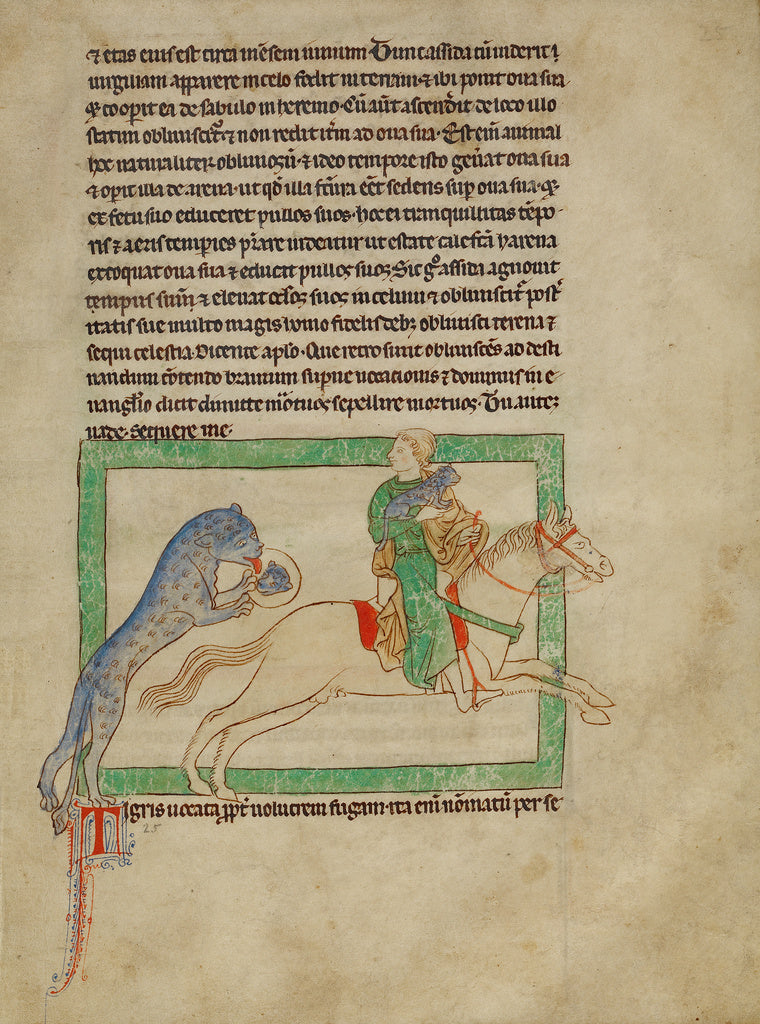 ⁊ etas eius est circa mẽsem iunium Tunc assida cũ uiderit
uirgiliam apparere in celo fodit in terram ⁊ ibi ponit oua sua
⁊ cooperit ea de sabulo in heremo. Cũ aũt ascenderit de loco illo
statim obliuiscit̃ ⁊ non redit itm̃ ad oua sua. Est enĩ animal
hoc naturaliter obliuiosũ ⁊ ideo tempore isto geñat oua sua
⁊ operit illa de arena ut
sedens sup oua sua
ex fetu suo educeret pullos suos hoc ei tranquillitas tẽpo
ris ⁊ aeris temperies p̃stare uidentur ut estate calefcã harena
excoquat oua sua ⁊ educat pullos suos. Sic gͦ assida agnouit
tempus suũ ⁊ eleuat oc̃los suos in celum ⁊ obliuiscit̃ post̃
itatis sue multo magis homo fidelis deb; obliuisci terena ⁊
sequi celestia. Dicente aplo. Que retro sunt obliuiscẽs ad desti
nandum cõtendo brauium superne uocationis ⁊ dominus in e
uangłio dicit dimitte m̃otuos sepellire mortuos. Tu aute;
uade. sequere me.
Tigris uocata ꝓpt̃ uolucrem fugam. ita enĩ nõinatũ per se
25